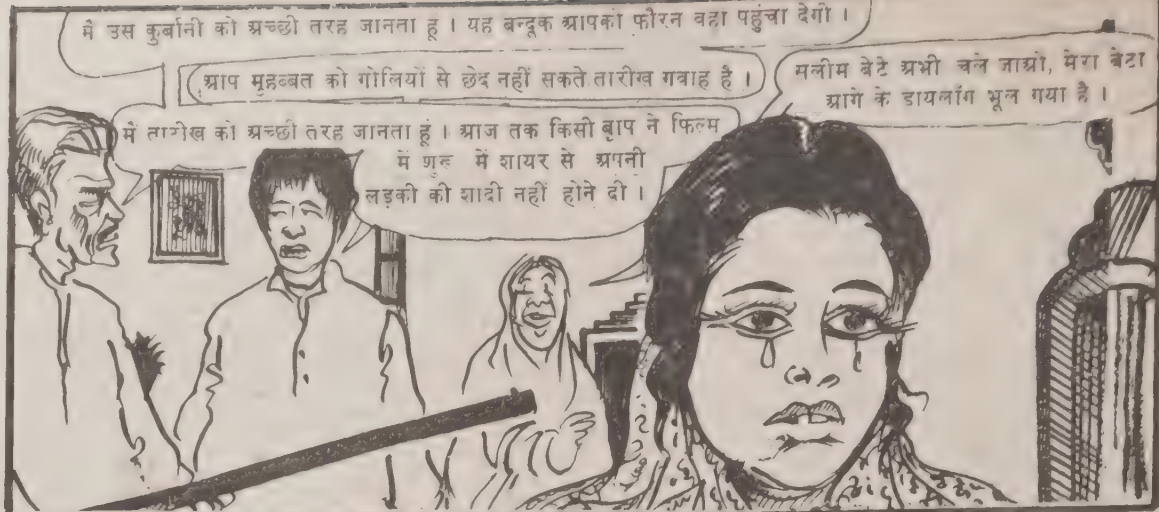 मैं उस कुर्बानी को अच्छी तरह जानता हूं । यह बन्दूक आपको फौरन वहां पहुंचा देगी ।
आप मुहब्बत को गोलियों से छेद नहीं सकते तारीख गवाह है ।
मैं तारीख को अच्छी तरह जानता हूं । आज तक किसी बाप ने फिल्म
में शुरू में शायर से अपनी
लड़की की शादी नहीं होने दी ।
सलीम बेटे अभी चले जाओ, मेरा बेटा
आगे के डायलॉग भूल गया है ।